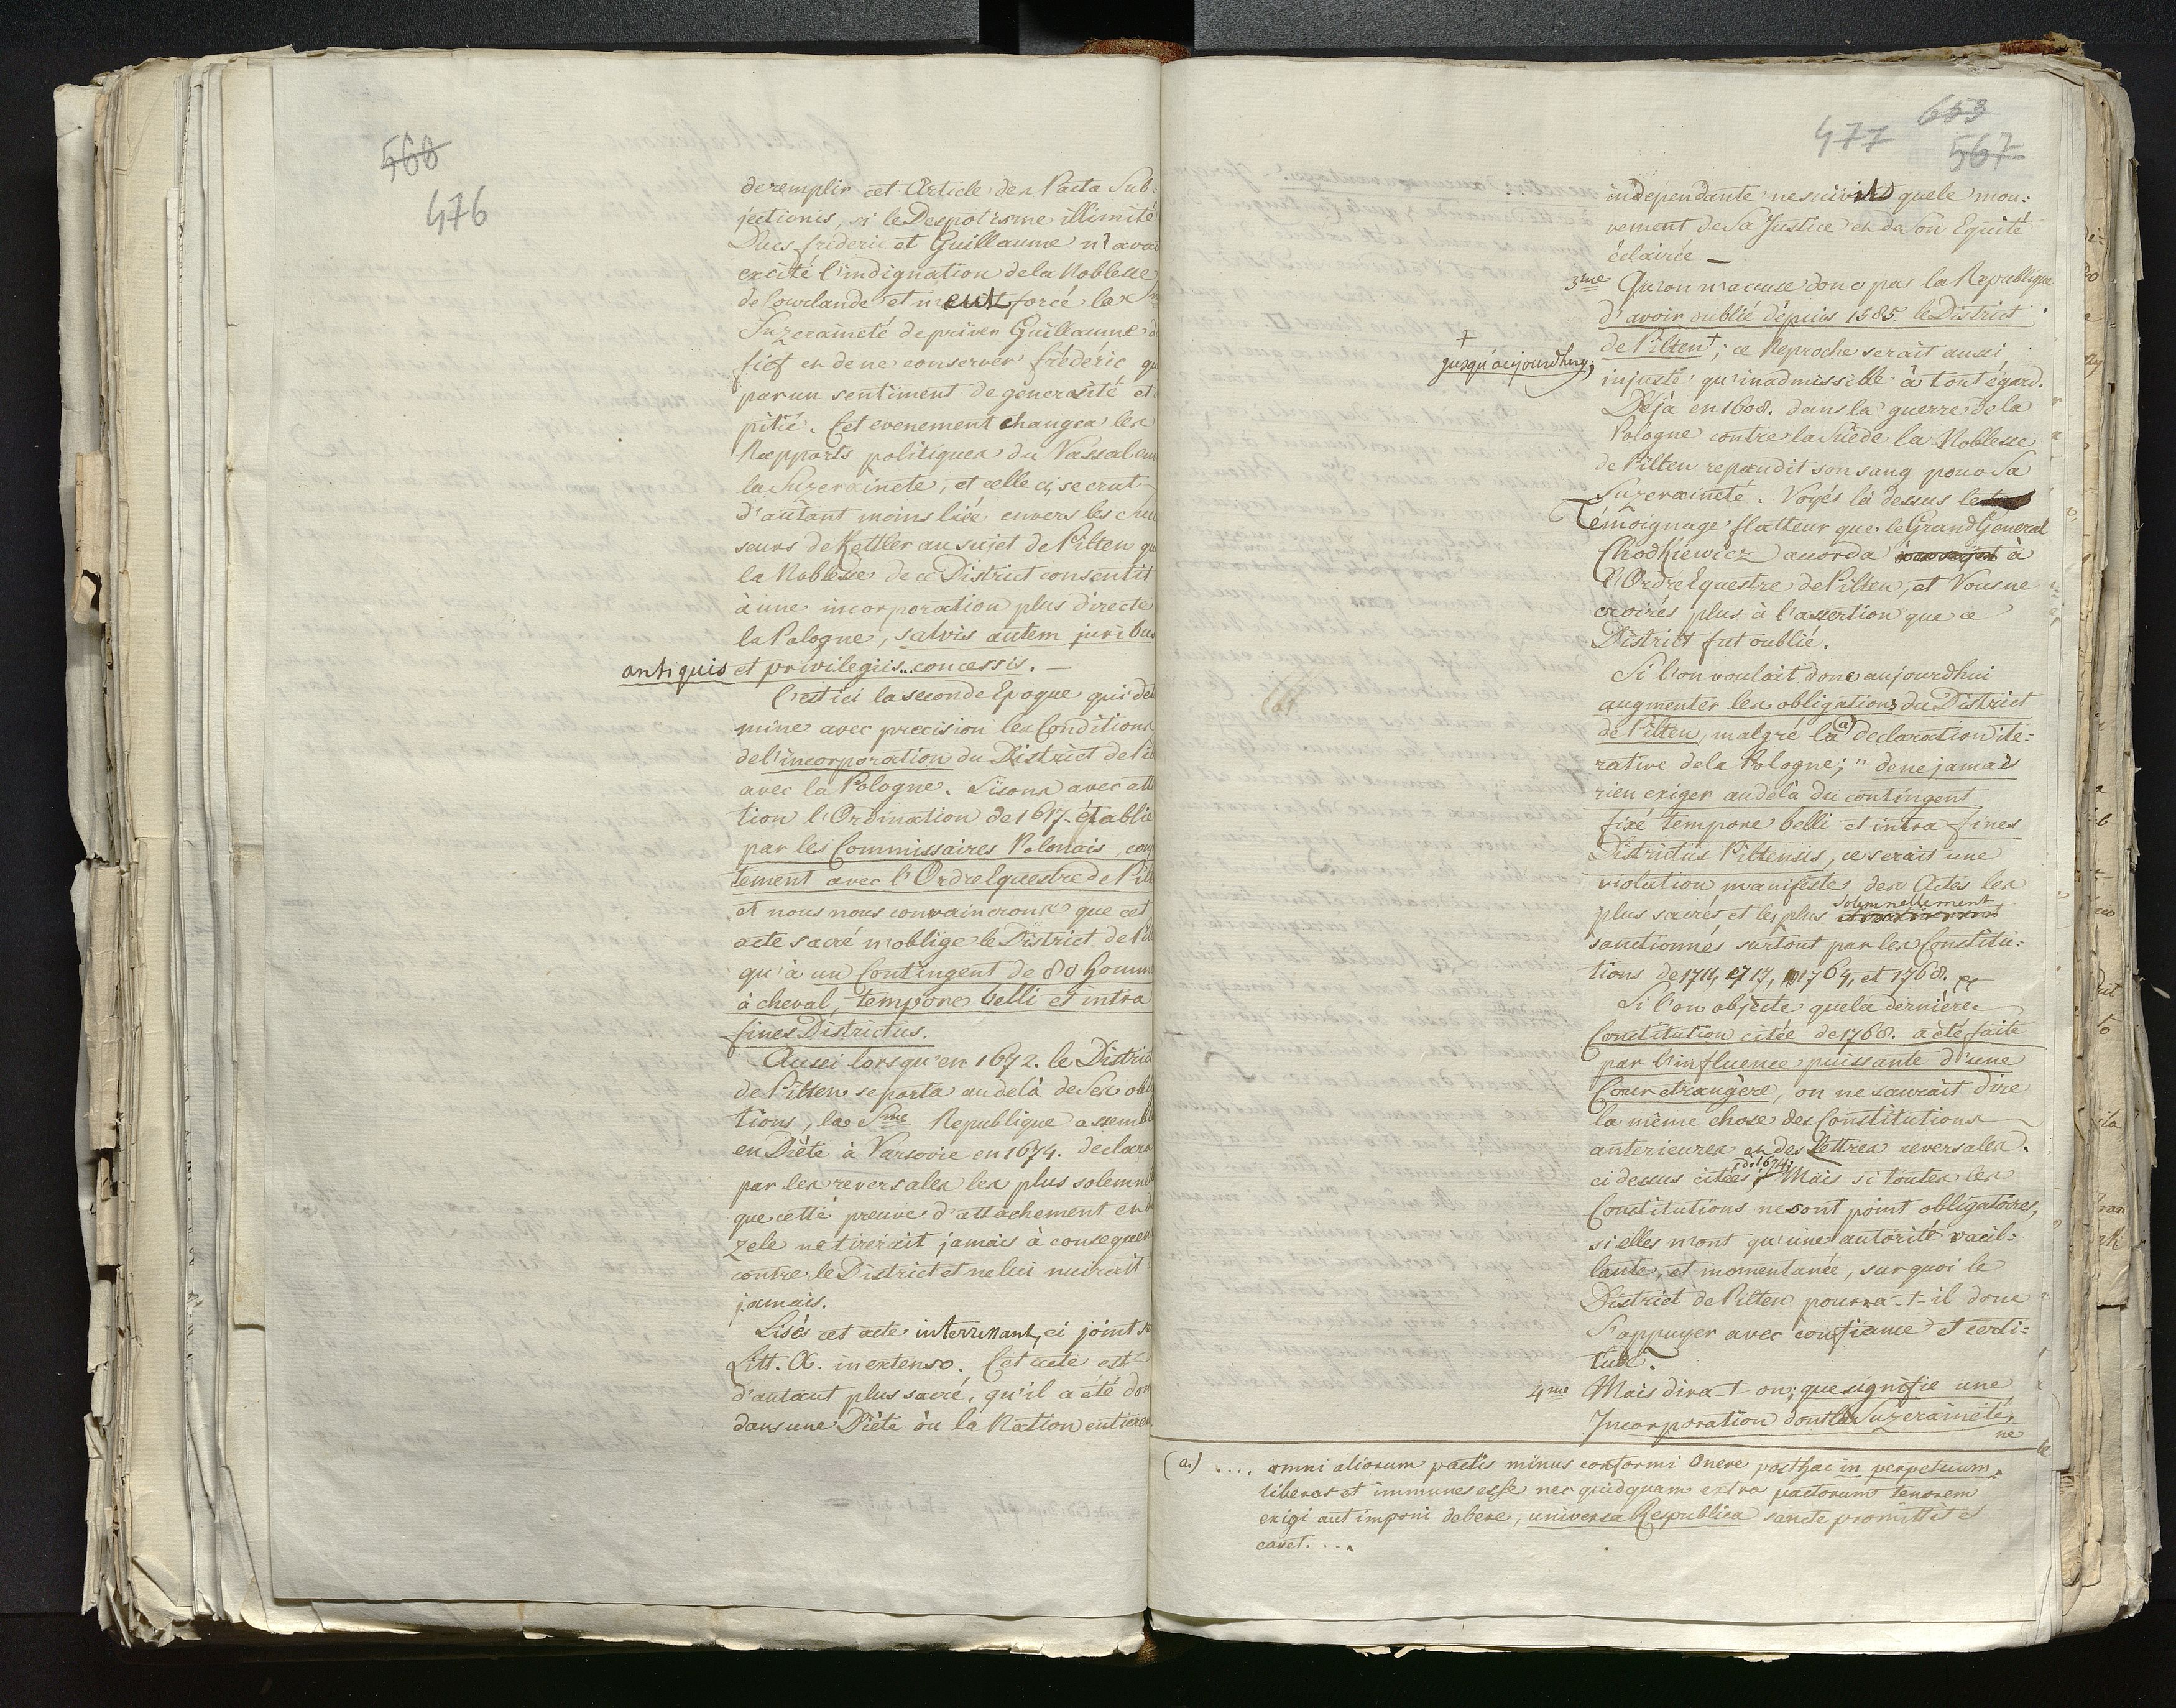 566
476
de remplir cet Article des Pacta Sub:
jectionis, si le Despotisme illimité
Ducs frideric et Guillaume n'avait
excité l'indignation de la Noblesse
de Courlande et n'eut forcé la
Suzeraineté de priver Guillaume
fief et de ne conserver fréderic
par un sentiment de generosité et
pitié. Cet evenement changea les
Rapports politiques du Vassal
la Suzeraineté, et celle ci, se crut
d'autant moins liée envers les
seurs de Kettler au sujet de Pilten
la Noblesse de ce District consentit
à une incorporation plus directe
la Pologne, salvis autem juribus
antiquis et privilegiis... concessis. —
C'est ici la seconde Epoque qui
mine avec precision les Conditions
de l'incorporation du District de
avec la Pologne. Lisons avec
tion l'Ordination de 1617. établie
par les Commissaires Polonais,
tement avec l'Ordre Equestre de
et nous nous convaincrons que cet
acte sacré n'oblige le District de
qu'à un Contingent de 80 homm
à cheval, tempore belli et intra
fines Districtus.
Aussi lorsqu'en 1672. le District
de Pilten se porta au delà de Ses
tions, la Sme Republique
en Diète à Varsovie en 1674. declara
par les reversales les plus solemn
que cette preuve d'attachement et
zele ne tirerait jamais à consequen
contre le District et ne lui nuirait
jamais.
Lisés cet acte interressant, ci joint
Litt. A. in extenso. Cet acte est
d'autant plus sacré, qu'il a été
dans une Diète où la Nation entiere
653
477
567
independante ne suivit que le mou:
vement de Sa Justice et de Son Equité
éclairée —
3me Qu'on n'accuse donc pas la Republique
d'avoir oublié dépuis 1585. le District
+
jusqu'aujourdhuy;
de Pilten+; ce Reproche serait aussi
injuste qu'inadmissible à tout égard.
Déja en 1608. dans la guerre de la
Pologne contre la Suède la Noblesse
de Pilten repandit son sang pour Sa
Suzeraineté. Voyés là dessus le
Témoignage flatteur que le Grand General
Chodkiewicz accorda à
l'Ordre Equestre de Pilten, et Vous ne
croirés plus à l'assertion que ce
District fut oublié.
Si l'on voulait donc aujourdhui
augmenter les obligations du District
de Pilten, malgré la (a) declaration ite:
rative de la Pologne; " de ne jamais
rien exiger au delà du contingent
fixé tempore belli et intra fines
Districtus Piltensis, ce serait une
violation manifeste des Actes les
plus sacrés et les plus solemnellement
sanctionnés surtout par les Constitu:
tions de 1711, 1717, 1764, et 1768.
Si l'on objecte que la dernière
Constitution citée de 1768. a été faite
par l'influence puissante d'une
Cour etrangère, on ne saurait dire
la même chose des Constitutions
anterieures et des Lettres reversales
ci dessus citées de 1674; Mais si toutes les
Constitutions ne sont point obligatoires,
si elles n'ont qu'une autorité vacil:
lante, et momentanée, sur quoi le
District de Pilten pourra-t-il donc
s'appuyer avec confiance et certi:
tude.
4me Mais dira-t-on; que signifie une
Incorporation dont la Suzeraineté
ne
(a.) .... omni aliorum pactis minus conformi Onere posthac in perpetuum
liberos et immunes esse nec quidquam extra pactorum tenorem
exigi aut imponi debere, universa Respublica sancte promittit et
cavet. ...